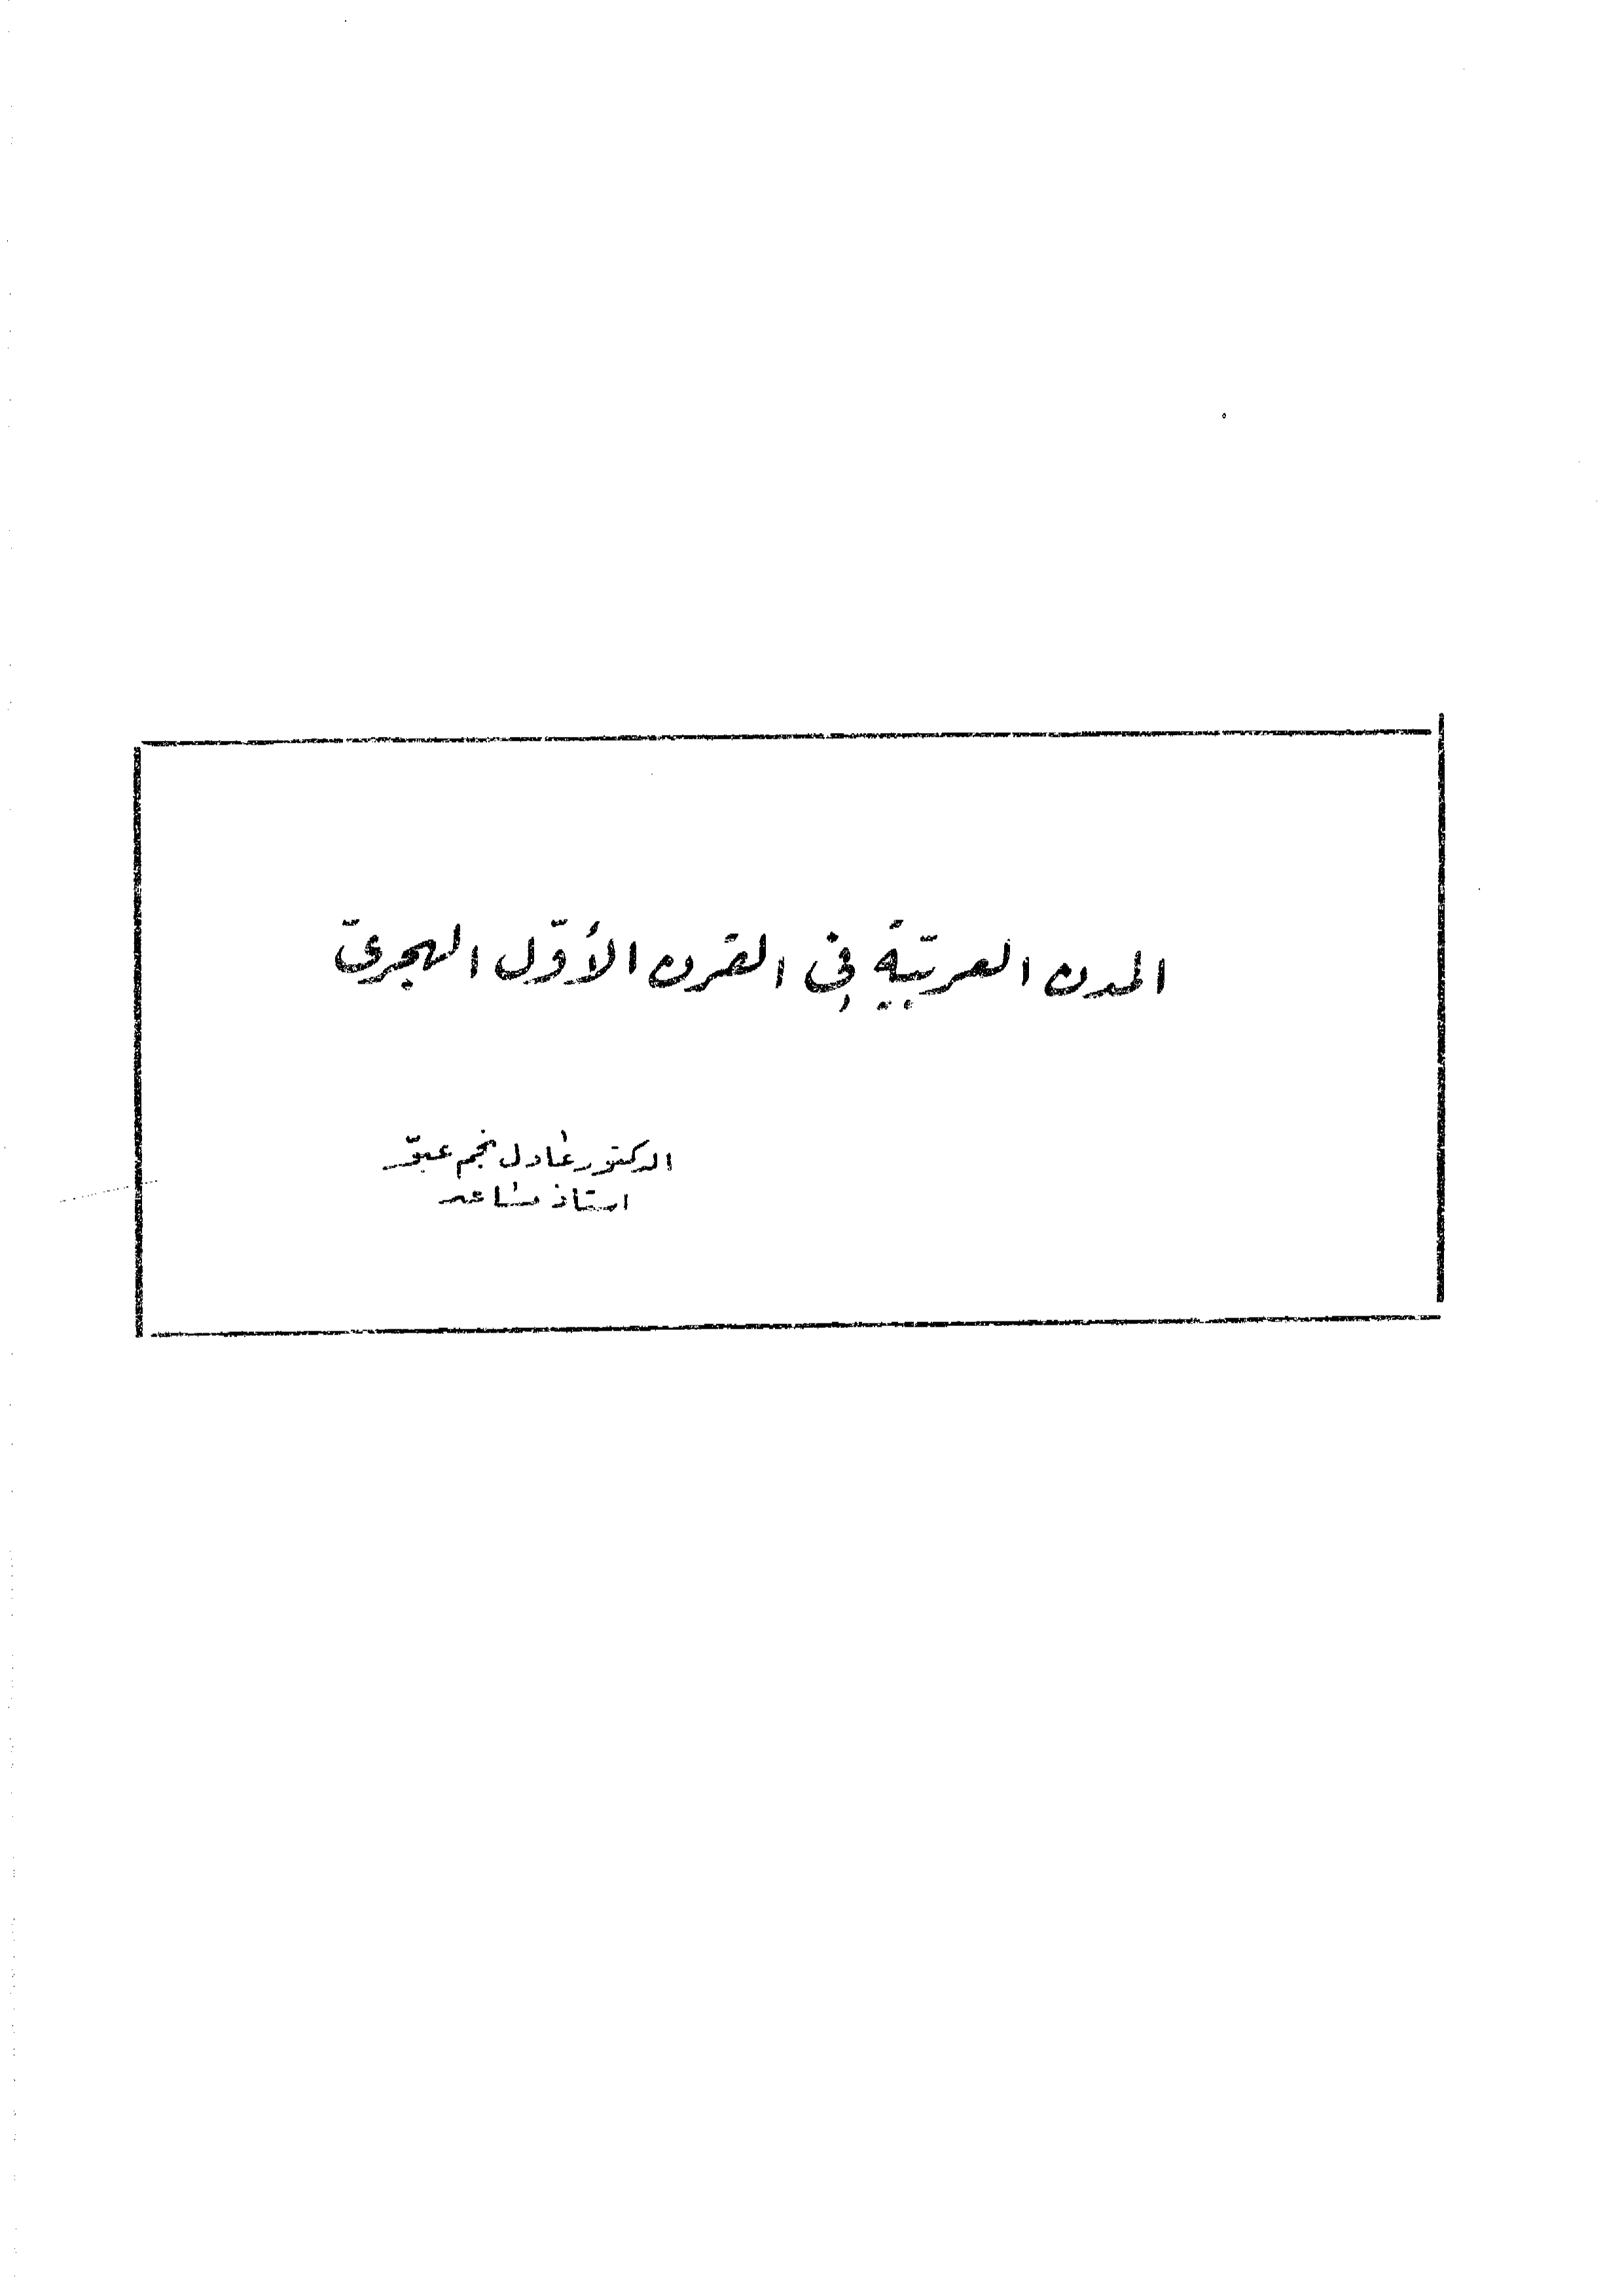 المدن العربيّة في القرن الأوّل الهجريّ
الدكتور عادل نجم عبّو
استاذ مساعد